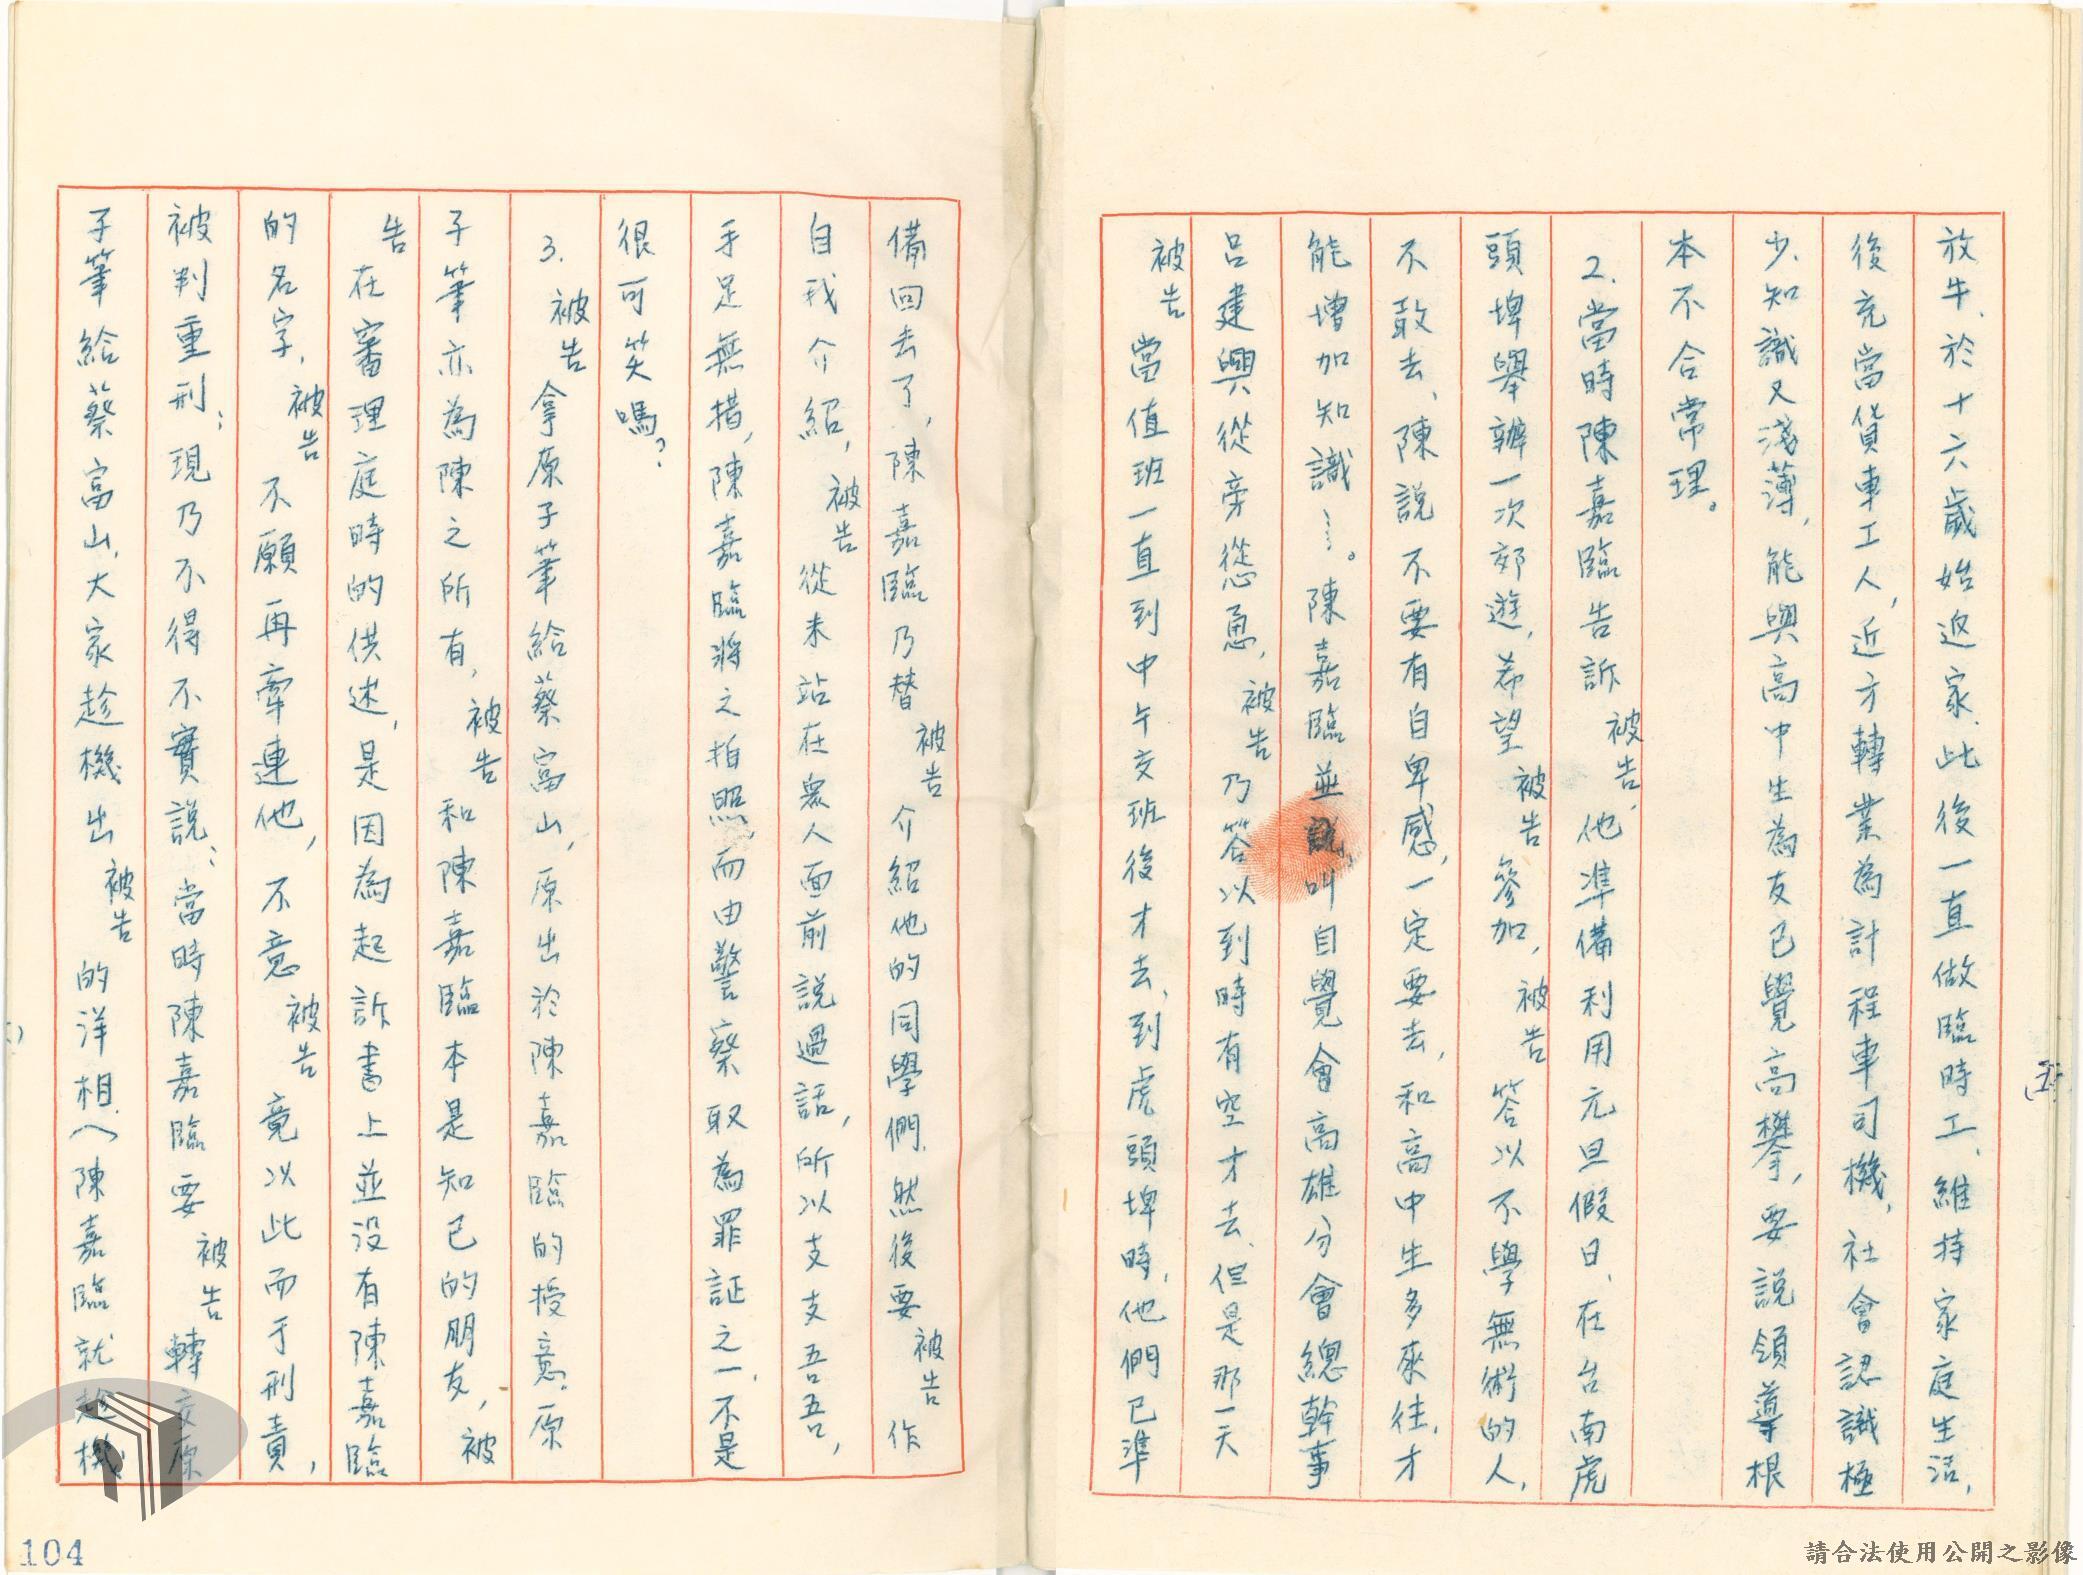 放牛、於十六歲始返家、此後一直做臨時工、維持家庭生活，
後充當貨車工人，近方轉業為計程車司機，社會認識極
少、知識又淺薄，能與高中生為友已覺高攀，要說領導根
本不合常理。
2.當時陳嘉臨告訴被告，他準備利用元旦假日、在台南虎
頭埤舉辦一次郊遊，希望被告參加，被告答以不學無術的人，
不敢去、陳說不要有自卑感，一定要去，和高中生多來往，才
能增加知識……。陳嘉臨並說，叫自覺會高雄分會總幹事
呂建興從旁慫恿，被告乃答以到時有空才去、但是那一天
被告當值班一直到中午交班後才去，到虎頭埤時，他們已準
備回去了，陳嘉臨乃替被告介紹他的同學們、然後要被告作
自我介紹，被告從未站在眾人面前說過話，所以支支吾吾，
手足無措，陳嘉臨將之拍照，而由警察取為罪証之一，不是
很可笑嗎？
3.被告拿原子筆給蔡富山，原出於陳嘉臨的授意，原
子筆亦為陳之所有，被告和陳嘉臨本是知己的朋友，被
告在審理庭時的供述，是因為起訴書上並沒有陳嘉臨
的名字，被告不願再牽連他，不意被告竟以此而于刑責，
被判重刑；現乃不得不實說：當時陳嘉臨要被告轉交原
子筆給蔡富山，大家趁機出被告的洋相、（陳嘉臨就趁機
(五)
104
請合法使用公開之影像